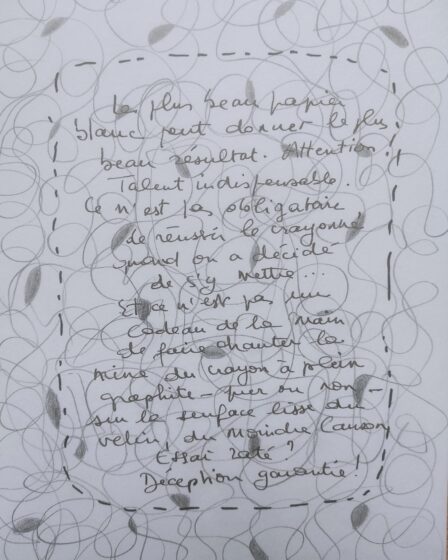 Le plus beau papier
blanc peut donner le plus
beau résultat. Attention!
Talent indispensable.
Ce n'est pas obligatoire
de réussir le crayonné
quand on a décidé
de s'y mettre...
Et ce n'est pas un
cadeau de la main
de faire chanter la
mine du crayon à plein
graphite - gras ou non -
sur la surface lisse du
vélin, du moindre Canson
Essai raté?
Déception garantie!